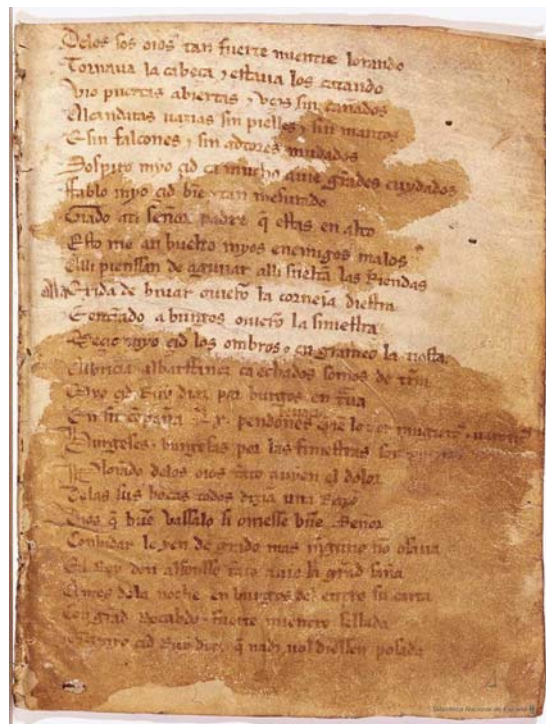 Delos sos oios tan fuerte mientre lorando
Tornaua la cabeça z estaua los catando
Vio puertas abiertas z vços sin cañados
Alcandaras uazias sin pielles z sin mantos
E sin falcones z sin adtores mudados
Sospiro myo çid ca mucho auie grãdes cuydados
Ffablo myo çid biẽ z tan mesurado
Grado ati señor padre q̃ estas en alto
Esto me an buelto myos enemigos malos
Alli pienssan de aguijar alli sueltã las Riendas
Ala Exida de biuar ouierõ la corneia diestra
Entrãdo a burgos ouierõ la siniestra
Meçio myo çid los ombros z en grameo la tiesta
Albricia albarffanez ca echados somos de tr̃ra
Myo çid Ruy diaz por burgos en traua
En su cõpaña Lx pendones
Burgeses z burgesas por las finiestras son
Plorãdo delos oios tãto auyen el dolor
Delas sus bocas todos dizian una Razõ
Dios q̃ buẽ vassalo si ouiesse buẽ Señor
Conbidar le yen de grado mas ninguno no osaua
El Rey don alfonsso tãto auie la grãd saña
Antes dela noche en burgos del entro su carta
Con grãd Recabdo z fuerte mientre sellada
çid Ruy diaz q̃ nadi nol diessen posada
Biblioteca Nacional de España